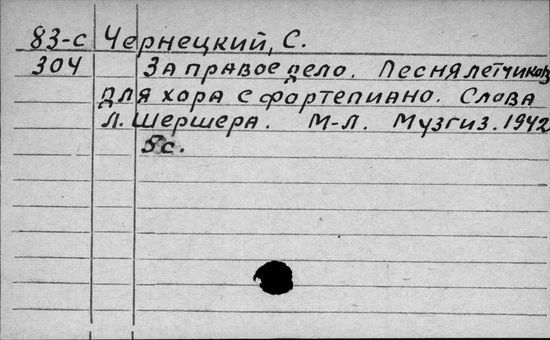 83-с Чернецкий, С.
304 За правое дело. Песня летчиков
для хора с фортепиано. Слова
Л. Шершера. М-Л. Музгиз. 1942
5с.